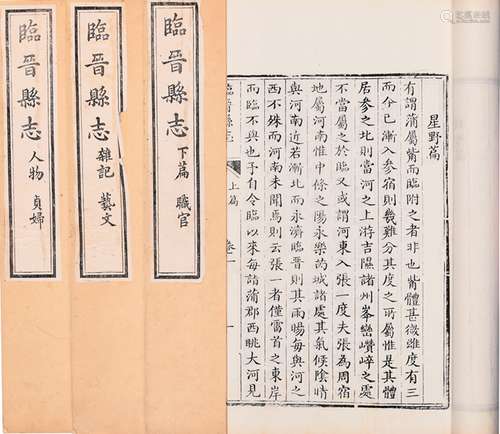 臨晉縣志 下篇 職官
臨晉縣志 雜記 藝文
臨晉縣志 人物 貞婦
星野篇
有謂蒲屬觜而臨附之者非也觜體甚微雖度有三
而今已漸入參宿則幾難分其度之所屬惟是其體
居參之北則當河之上游吉隰諸州峯巒巑岏之處
不當屬之於臨又或謂河東入張一度夫張為周宿
地屬河南惟中條之陽永樂芮城諸處其氣候陰晴
與河南近若漸北而永濟臨晉則其雨暘每與河之
西不殊而河南未聞焉則云張一者僅富首之東岸
而臨不與也予自令臨以來每詣蒲郡西眺大河見
臨晉縣志
上篇
卷一
一